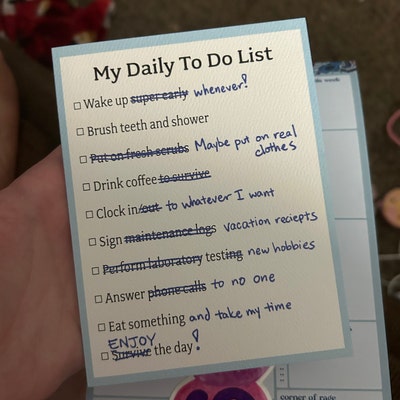 My Daily To Do List
Wake up super early whenever!
Brush teeth and shower
Put on fresh scrubs Maybe put on real
clothes
Drink coffee to survive
Clock in/out to whatever I want
Sign maintenance logs vacation reciepts
Perform laboratory testing new hobbies
Answer phone calls to no one
Eat something and take my time
ENJOY
Survive the day!
corner of page